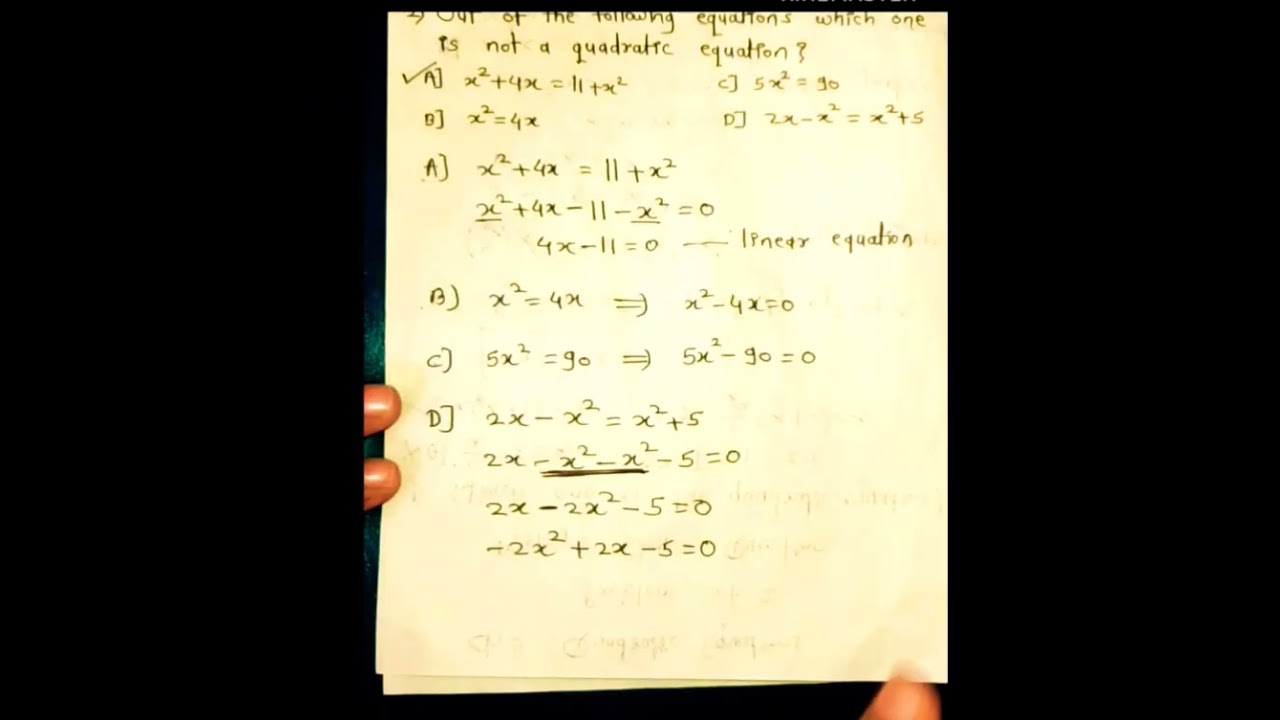 2) Out of the following equations which one
is not a quadratic equation?
✓A] x²+4x = 11+x² C] 5x² = 90
B] x²=4x D] 2x-x² = x²+5
A] x²+4x = 11+x²
x²+4x-11-x² = 0
4x-11=0 — linear equation
B) x²=4x ⇒ x²-4x=0
C] 5x² = 90 ⇒ 5x²-90=0
D] 2x-x² = x²+5
2x-x²-x²-5=0
2x-2x²-5=0
-2x²+2x-5=0